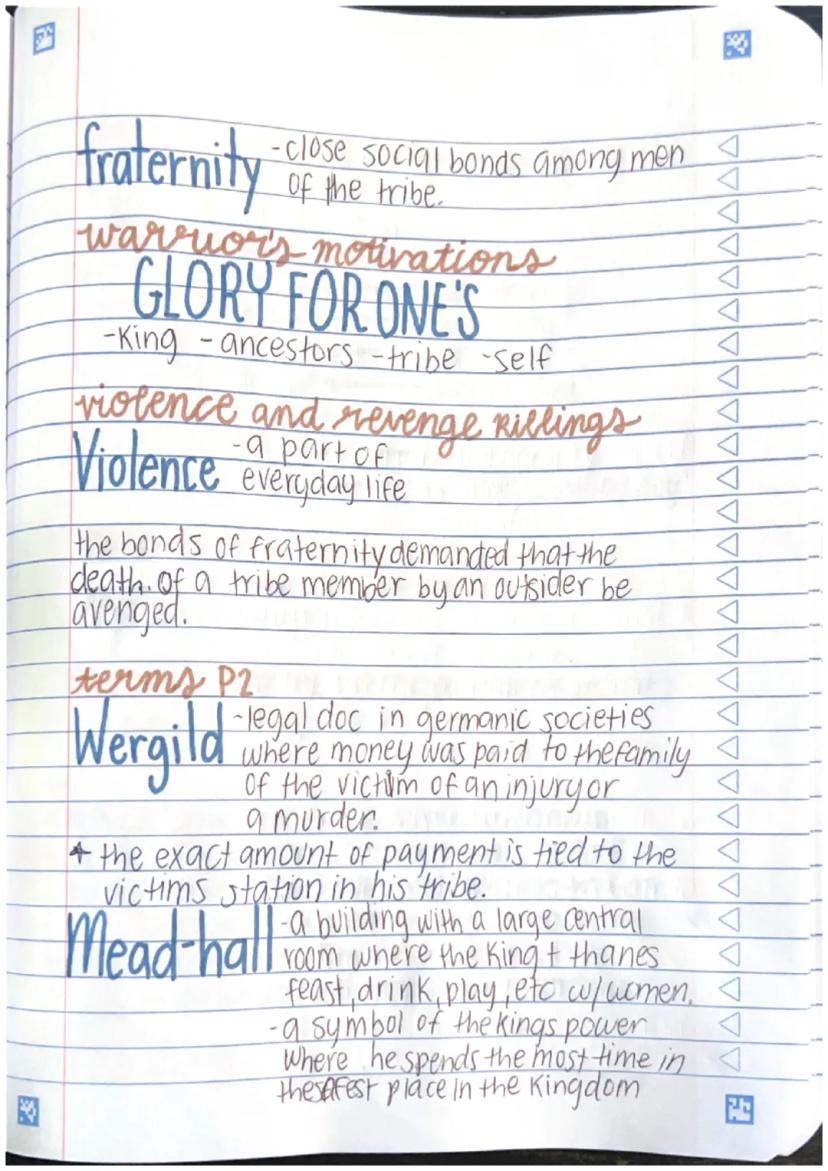 fraternity -close social bonds among men
of the tribe.
warrior's motivations
GLORY FOR ONE'S
-King -ancestors -tribe -self
violence and revenge killings
Violence -a part of
everyday life
the bonds of fraternity demanded that the
death of a tribe member by an outsider be
avenged.
terms P2
Wergild -legal doc in germanic societies
where money was paid to the family
of the victim of an injury or
a murder.
* the exact amount of payment is tied to the
victims station in his tribe.
Mead-hall -a building with a large central
room where the King + thanes
feast, drink, play, etc w/ women.
-a symbol of the kings power
where he spends the most time in
the safest place in the Kingdom